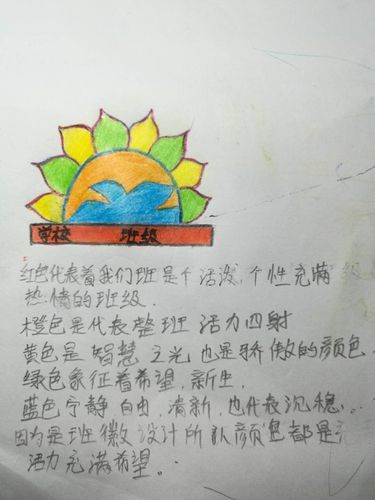 学校 班级
红色代表着我们班是个活泼、个性充满
热情的班级.
橙色是代表整班活力四射
黄色是智慧之光也是骄傲的颜色.
绿色象征着希望，新生.
蓝色宁静.自由，清新，也代表沉稳.
因为是班徽设计所以颜色都是充
活力充满希望。